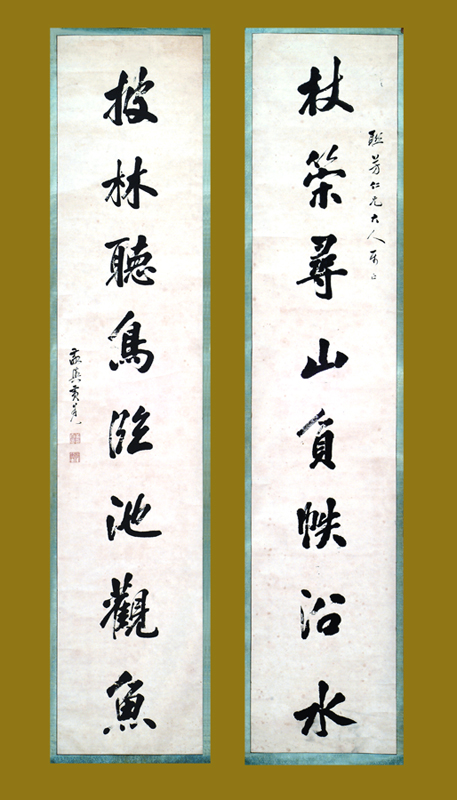 杖策尋山負帙沿水
芳仁兄大人
披林聽鳥臨池觀魚